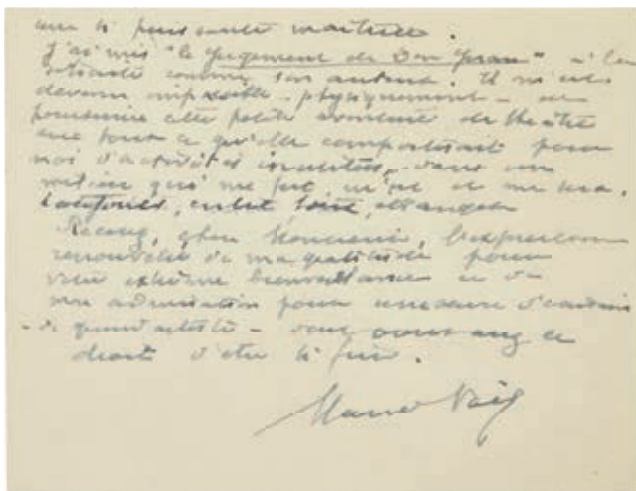 une si puissante maîtrise.
J'ai mis "le Jugement de Don Juan" à la
retraite comme son auteur. Il m'est
devenu impossible - physiquement - de
poursuivre cette petite aventure de théâtre
avec tout ce qu'elle comportait pour
moi d'activités inusitées, dans un
milieu qui me fut, m'est et me sera
toujours, entre tous, étranger
Recevez, cher Monsieur, l'expression
renouvelée de ma gratitude pour
votre extrême bienveillance et de
mon admiration pour une œuvre d'écrivain
- de grand artiste - dont vous avez le
droit d'être si fier.